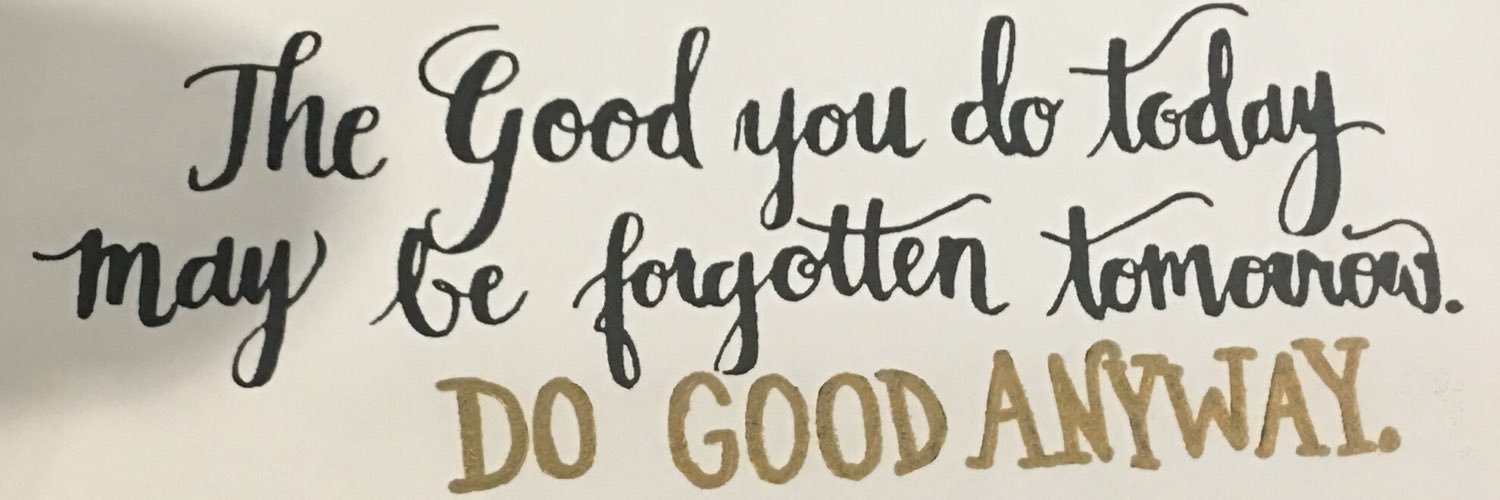 The Good you do today
may be forgotten tomorrow.
DO GOOD ANYWAY.